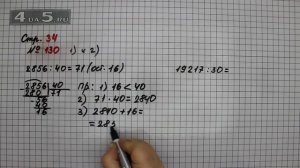 4DS.RU
Стр. 34
№ 130 1) и 2)
2856:40=71 (ост. 16) 19217:30=
2856 40
280 71
56
40
16
ПР: 1) 16<40
2) 71·40=2840
3) 2840+16=
=285